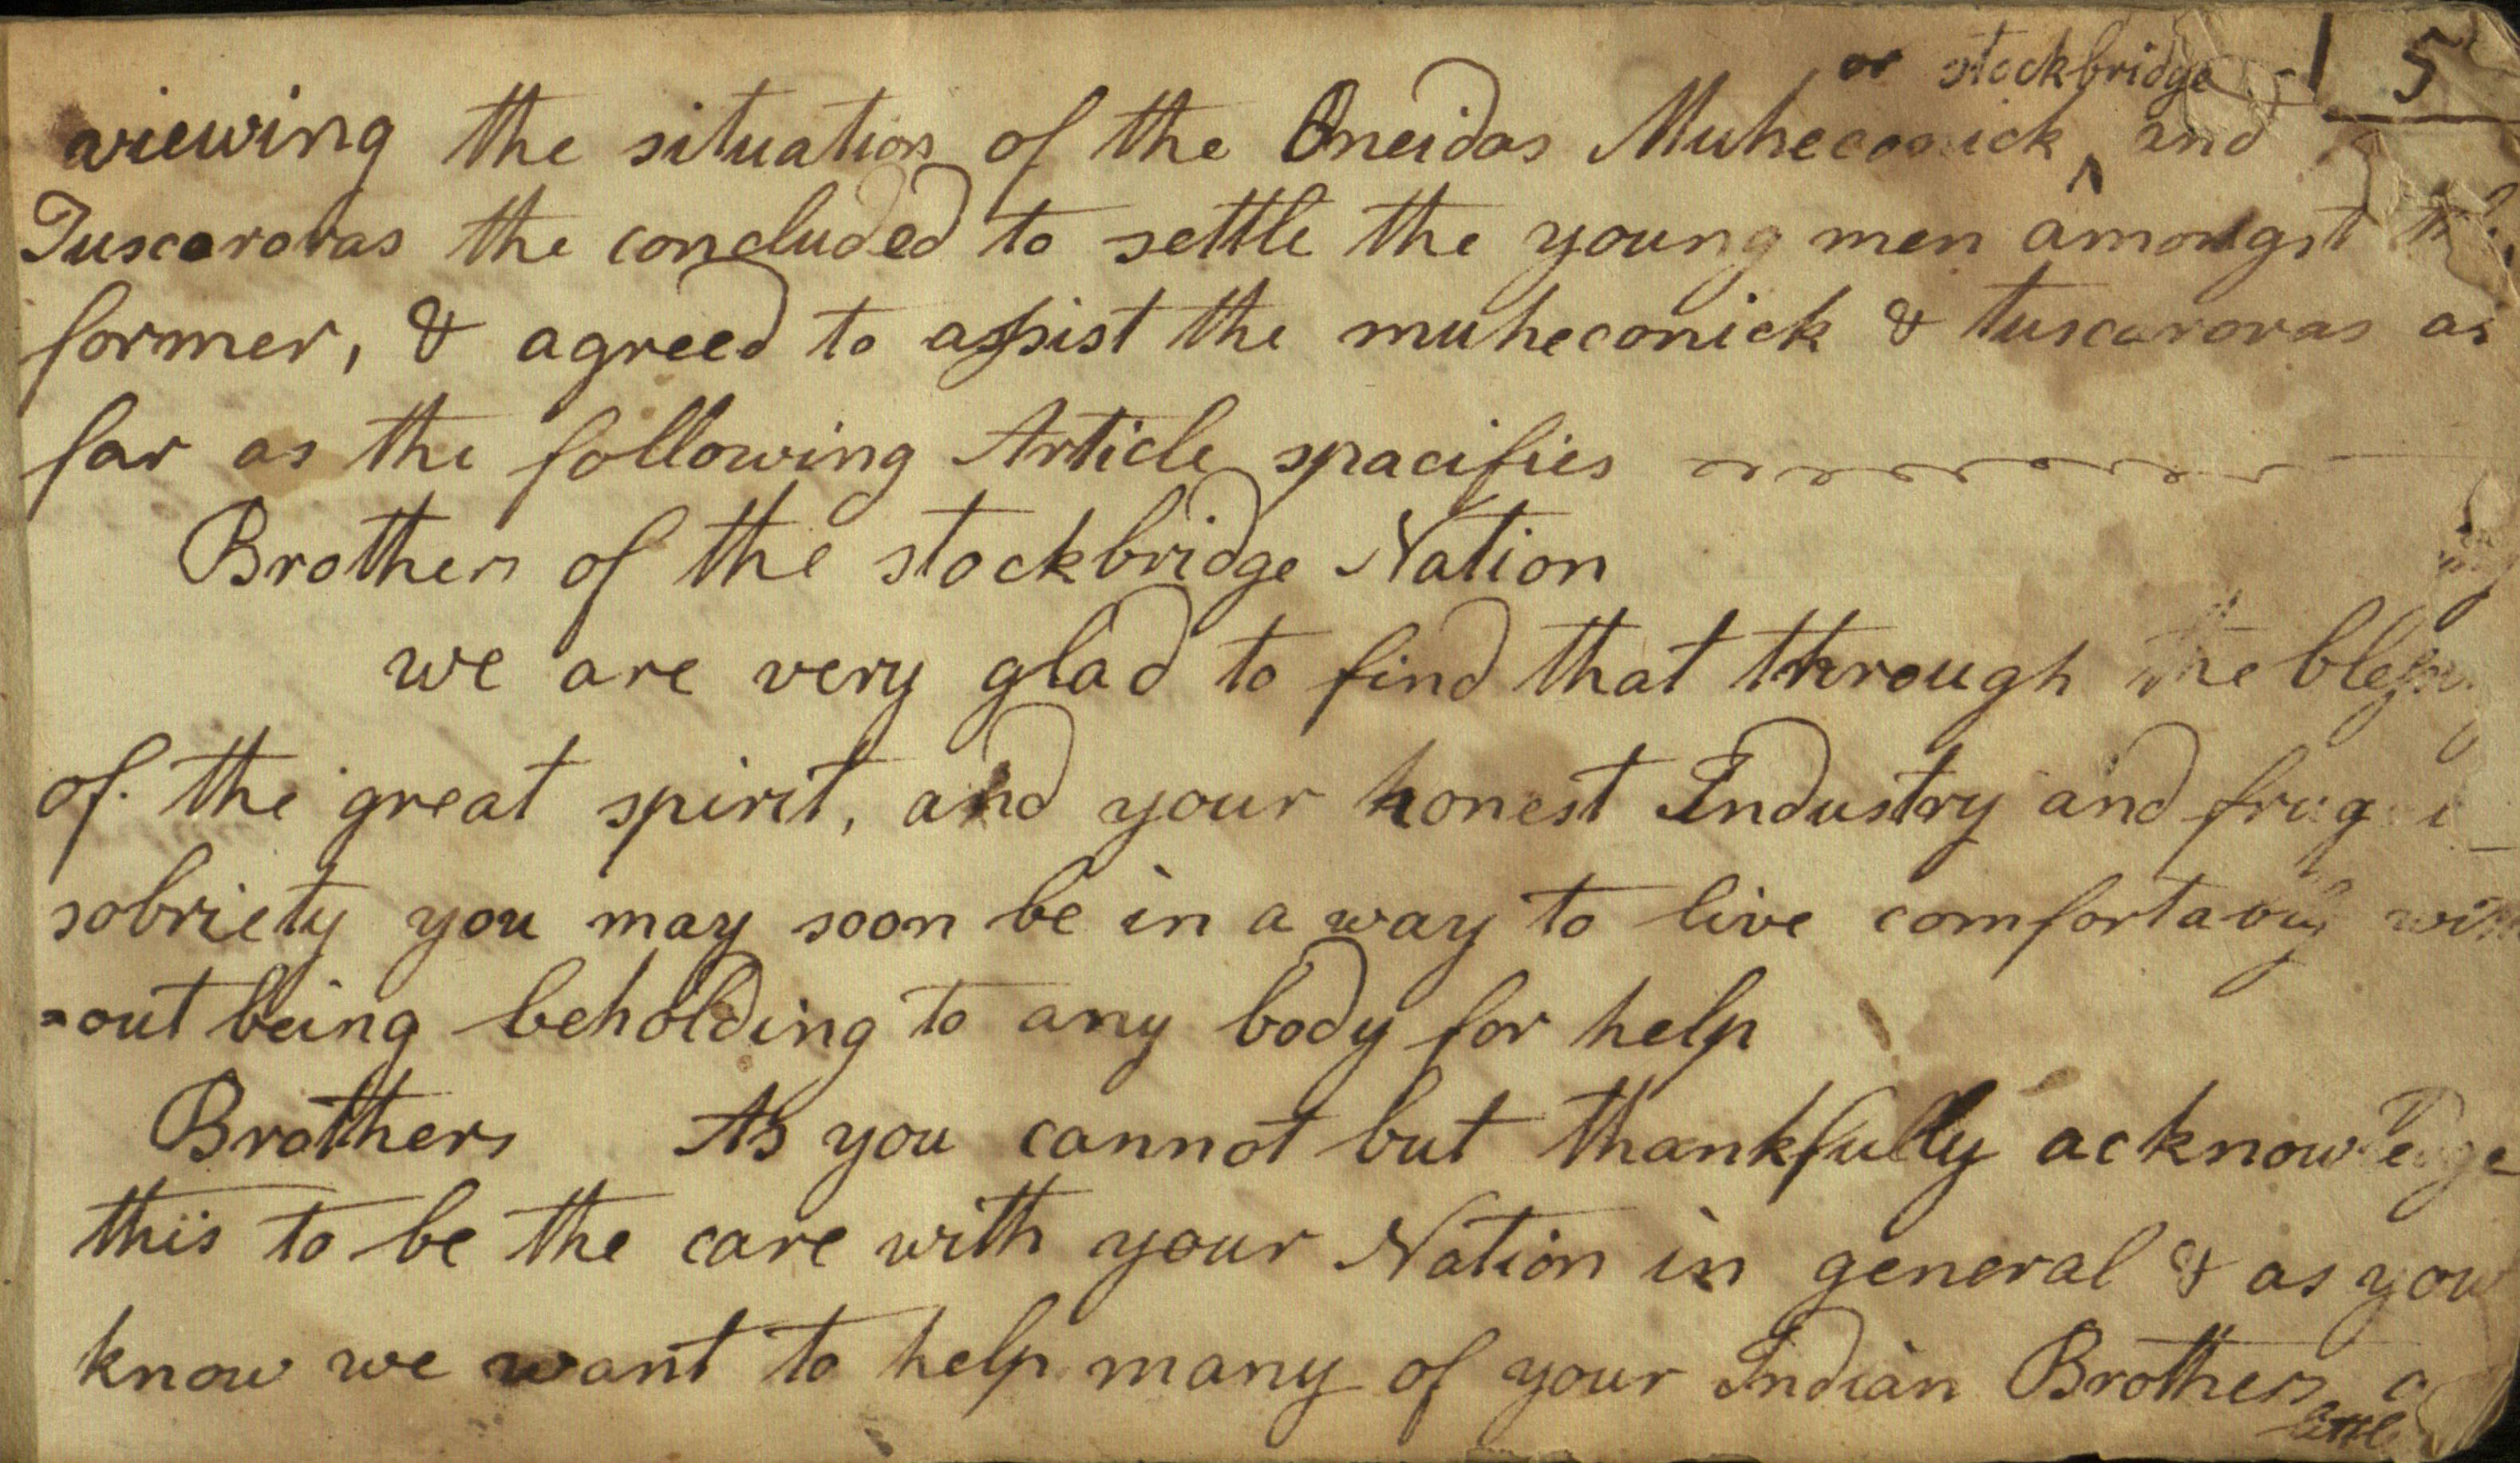 5
or stockbridge
viewing the situation of the Oneidas Muheconick ^ and
Tuscaroras the concluded to settle the young men amongst
former, & agreed to assist the muheconick & tuscaroras as
far as the following Article spacifies
Brothers of the stockbridge Nation
we are very glad to find that through the
of the great spirit, and your honest Industry and
sobriety you may soon be in a way to live comfortably
=out being beholding to any body for help
Brothers As you cannot but thankfully acknowledge
this to be the care with your Nation in general & as you
know we want to help many of your Indian Brothers